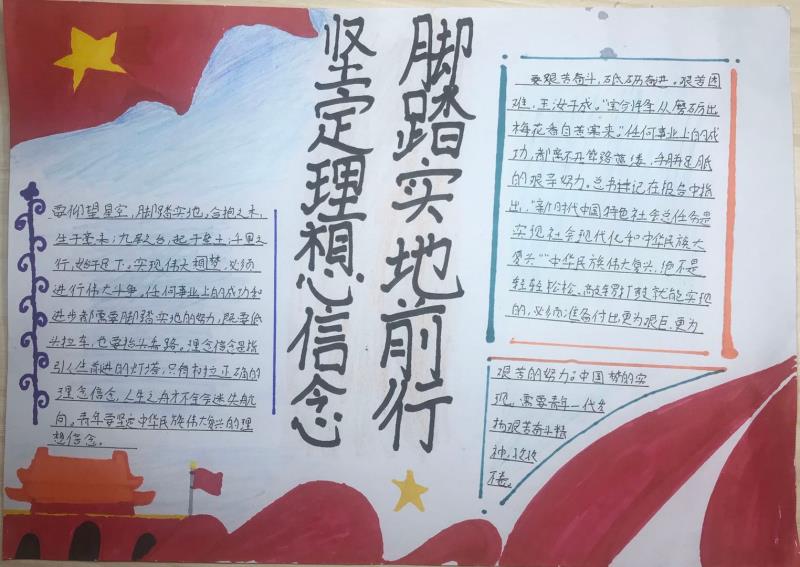 坚定理想信念
脚踏实地前行
要仰望星空，脚踏实地，合抱之木，
生于毫末；九层之台，起于垒土；千里之
行，始于足下。实现伟大梦，必须
进行伟大斗争，任何事业上的成功和
进步都需要脚踏实地的努力，既要低
头拉车，也要抬头看路。理念信念是指
引人生前进的灯塔，只有树立正确的
理念信念，人生之舟才不会迷失航
向。青年要坚定中华民族伟大复兴的理
想信念。
要艰苦奋斗，砥砺奋进。艰苦困
难，玉汝于成。“宝剑锋从磨砺出
梅花香自苦寒来。”任何事业上的成
功，都离不开筚路蓝缕，手胼足胝
的艰辛努力。总书记在报告中指
出，“新时代中国特色社会总任务是
实现社会现代化和中华民族大
复兴”“中华民族伟大复兴，绝不是
轻轻松松、敲锣打鼓就能实现
的，必须准备付出更为艰巨、更为
艰苦的努力。”中国梦的实
现，需要青年一代发
扬艰苦奋斗精
神，孜孜
不倦。